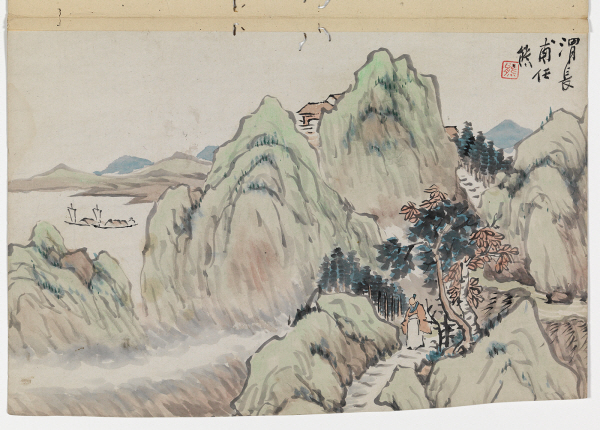 渭長
甫任
熊